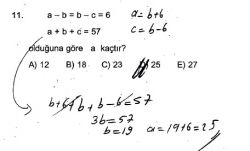 11. a – b = b – c = 6 a = b+6
a + b + c = 57 c = b-6
olduğuna göre a kaçtır?
A) 12 B) 18 C) 23 D) 25 E) 27
b+6+b+b-6=57
3b=57
b=19 a=19+6=25